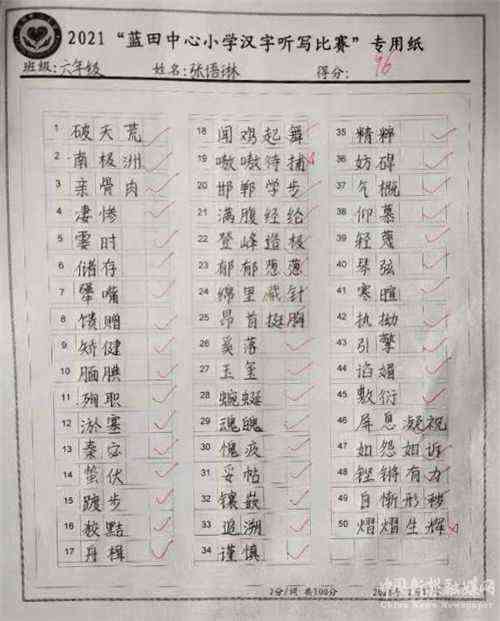 2021 “蓝田中心小学汉字听写比赛” 专用纸
班级: 六年级 姓名: 张语琳 得分: 96
1 破天荒
2 南极洲
3 亲骨肉
4 凄惨
5 霎时
6 储存
7 犟嘴
8 馈赠
9 矫健
10 腼腆
11 殉职
12 淤塞
13 秦
14 蛰伏
15 踱步
16 狡黠
17 舟楫
18 闻鸡起舞
19 嗷嗷待捕
20 邯郸学步
21 满腹经纶
22 登峰造极
23 郁郁葱葱
24 绵里藏针
25 昂首挺胸
26 奚落
27 玉玺
28 蜿蜒
29 魂魄
30 愧疚
31 妥帖
32 镶嵌
33 追溯
34 谨慎
35 精粹
36 妨碍
37 气概
38 仰慕
39 轻蔑
40 琴弦
41 寒暄
42 执拗
43 引擎
44 谄媚
45 敷衍
46 屏息凝视
47 如怨如诉
48 铿锵有力
49 自惭形秽
50 熠熠生辉
2分/词 共100分
中国新报融媒网
China News Newspaper